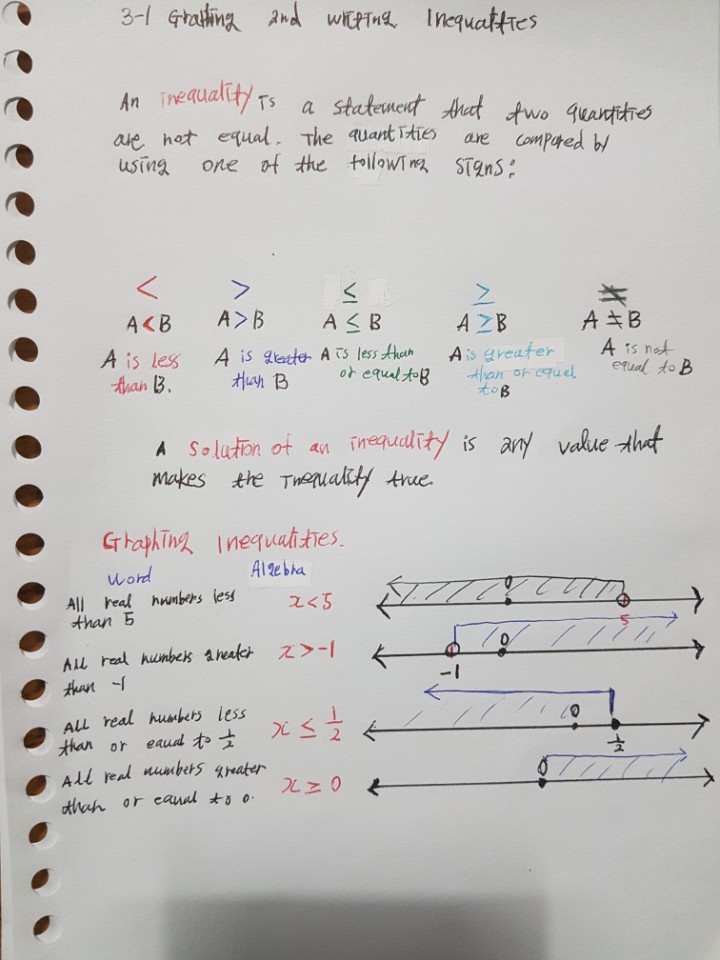 3-1 Graphing and writing Inequalities
An inequality is a statement that two quantities
are not equal. The quantities are compared by
using one of the following signs:
< > ≤ ≥ ≠
A<B A>B A≤B A≥B A≠B
A is less than B.
A is greater than B
A is less than or equal to B
A is greater than or equal to B
A is not equal to B
A solution of an inequality is any value that
makes the inequality true.
Graphing Inequalities.
word Algebra
All real numbers less
than 5
x<5
0 5
All real numbers greater
than -1
x>-1
-1 0
All real numbers less
than or equal to 1/2
x ≤ 1/2
0 1/2
All real numbers greater
than or equal to 0.
x ≥ 0
0